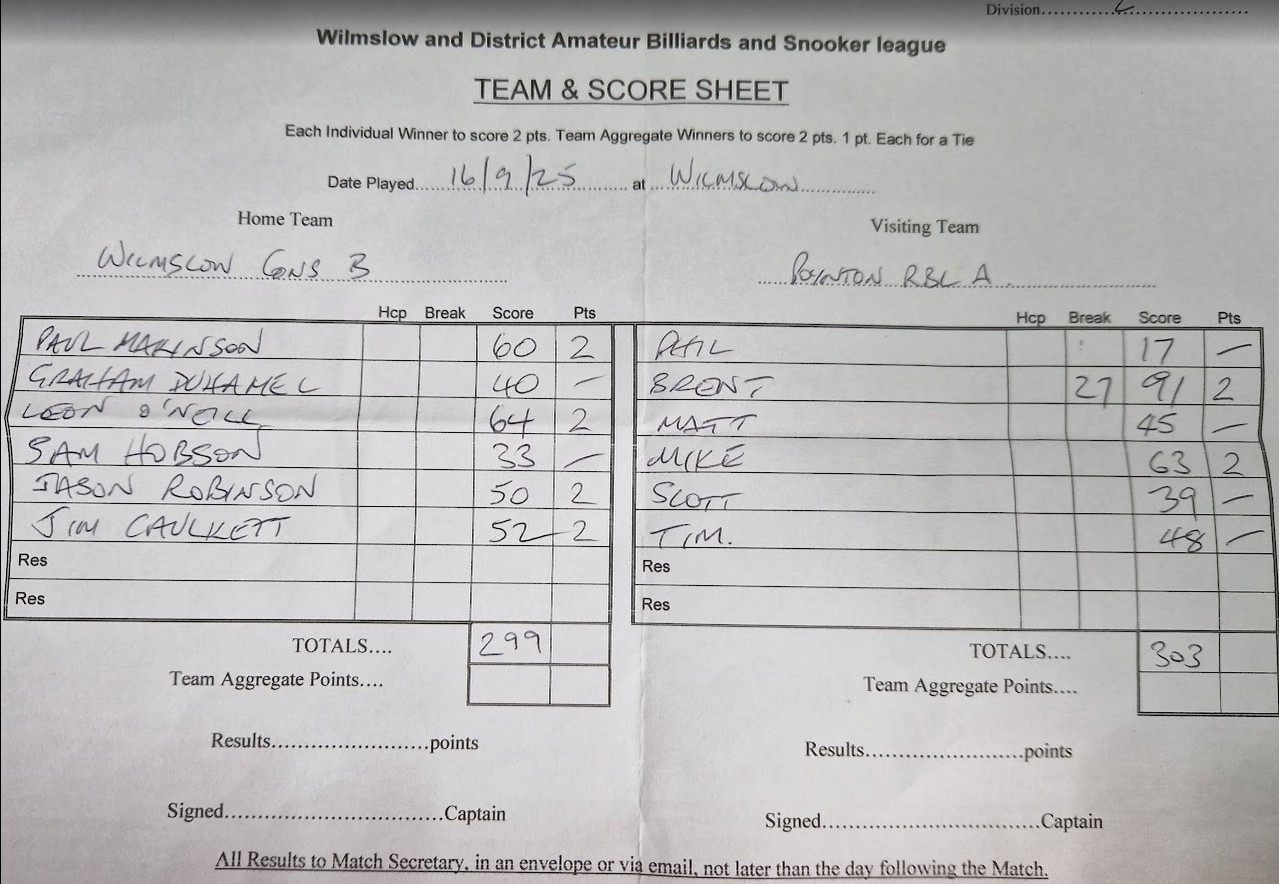 Division....................................
Wilmslow and District Amateur Billiards and Snooker league
TEAM & SCORE SHEET
Each Individual Winner to score 2 pts. Team Aggregate Winners to score 2 pts. 1 pt. Each for a Tie
Date Played.... 16/9/25 .......... at .... WILMSLOW ...............
Home Team Visiting Team
WILMSLOW CONS B POYNTON RBL A
Hcp Break Score Pts Hcp Break Score Pts
PAUL MAKINSON 60 2 PHIL 17 —
GRAHAM DUHAMEL 40 — BRENT 27 91 2
LEON O'NEILL 64 2 MATT 45 —
SAM HOBSON 33 — MIKE 63 2
JASON ROBINSON 50 2 SCOTT 39 —
JIM CAULKETT 52 2 TIM. 48 —
Res Res
Res Res
TOTALS.... 299 TOTALS.... 303
Team Aggregate Points.... Team Aggregate Points....
Results..........................points Results..........................points
Signed....................................Captain Signed....................................Captain
All Results to Match Secretary, in an envelope or via email, not later than the day following the Match.